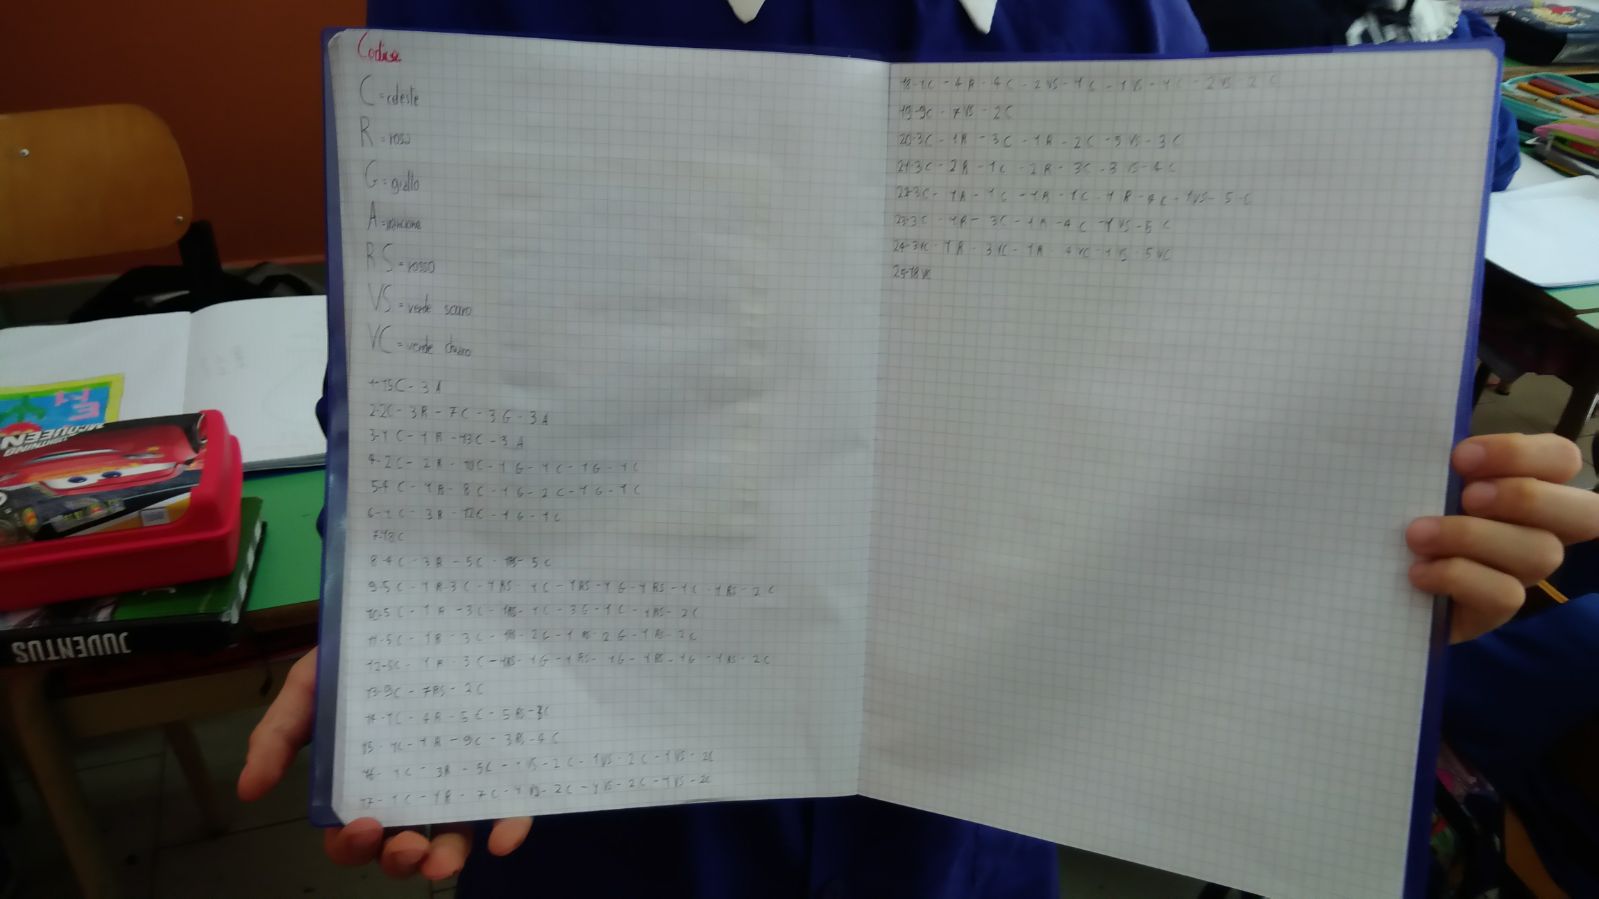 Codice
C = celeste
R = rosa
G = giallo
A = arancione
RS = rosso
VS = verde scuro
VC = verde chiaro
1-15C - 3A
2-2C - 3R - 7C - 3G - 3A
3-1C - 1R - 13C - 3A
4-2C - 2R - 10C - 1G - 1C - 1G - 1C
5-4C - 1R - 8C - 1G - 2C - 1G - 1C
6-1C - 3R - 12C - 1G - 1C
7-18C
8-4C - 3R - 5C - 1RS - 5C
9-5C - 1R - 3C - 1RS - 1C - 1RS - 1G - 1RS - 1C - 1RS - 2C
10-5C - 1R - 3C - 1RS - 1C - 3G - 1C - 1RS - 2C
11-5C - 1R - 3C - 1RS - 2G - 1RS - 2G - 1RS - 2C
12-5C - 1R - 3C - 1RS - 1G - 1RS - 1G - 1RS - 1G - 1RS - 2C
13-9C - 7RS - 2C
14-1C - 4R - 5C - 5RS - 3C
15-1C - 1R - 9C - 3RS - 4C
16-1C - 3R - 5C - 1VS - 2C - 1VS - 2C - 1VS - 2C
17-1C - 1R - 7C - 1VS - 2C - 1VS - 2C - 1VS - 2C
18-1C - 4R - 4C - 2VS - 1C - 1VS - 1C - 2VS - 2C
19-9C - 7VS - 2C
20-3C - 1R - 3C - 1R - 2C - 5VS - 3C
21-3C - 2R - 1C - 2R - 3C - 3VS - 4C
22-3C - 1R - 1C - 1R - 1C - 1R - 4C - 1VS - 5C
23-3C - 1R - 3C - 1R - 4C - 1VS - 5C
24-3VC - 1R - 3VC - 1R - 4VC - 1VS - 5VC
25-18VC
McQUEEN
LIGHTNING
JUVENTUS